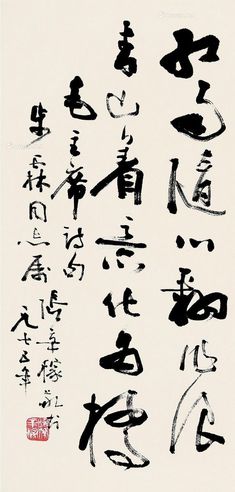 红雨隨心翻作浪
青山着意化为橋
毛主席诗句
同志属
张辛稼敬书
一九七五年